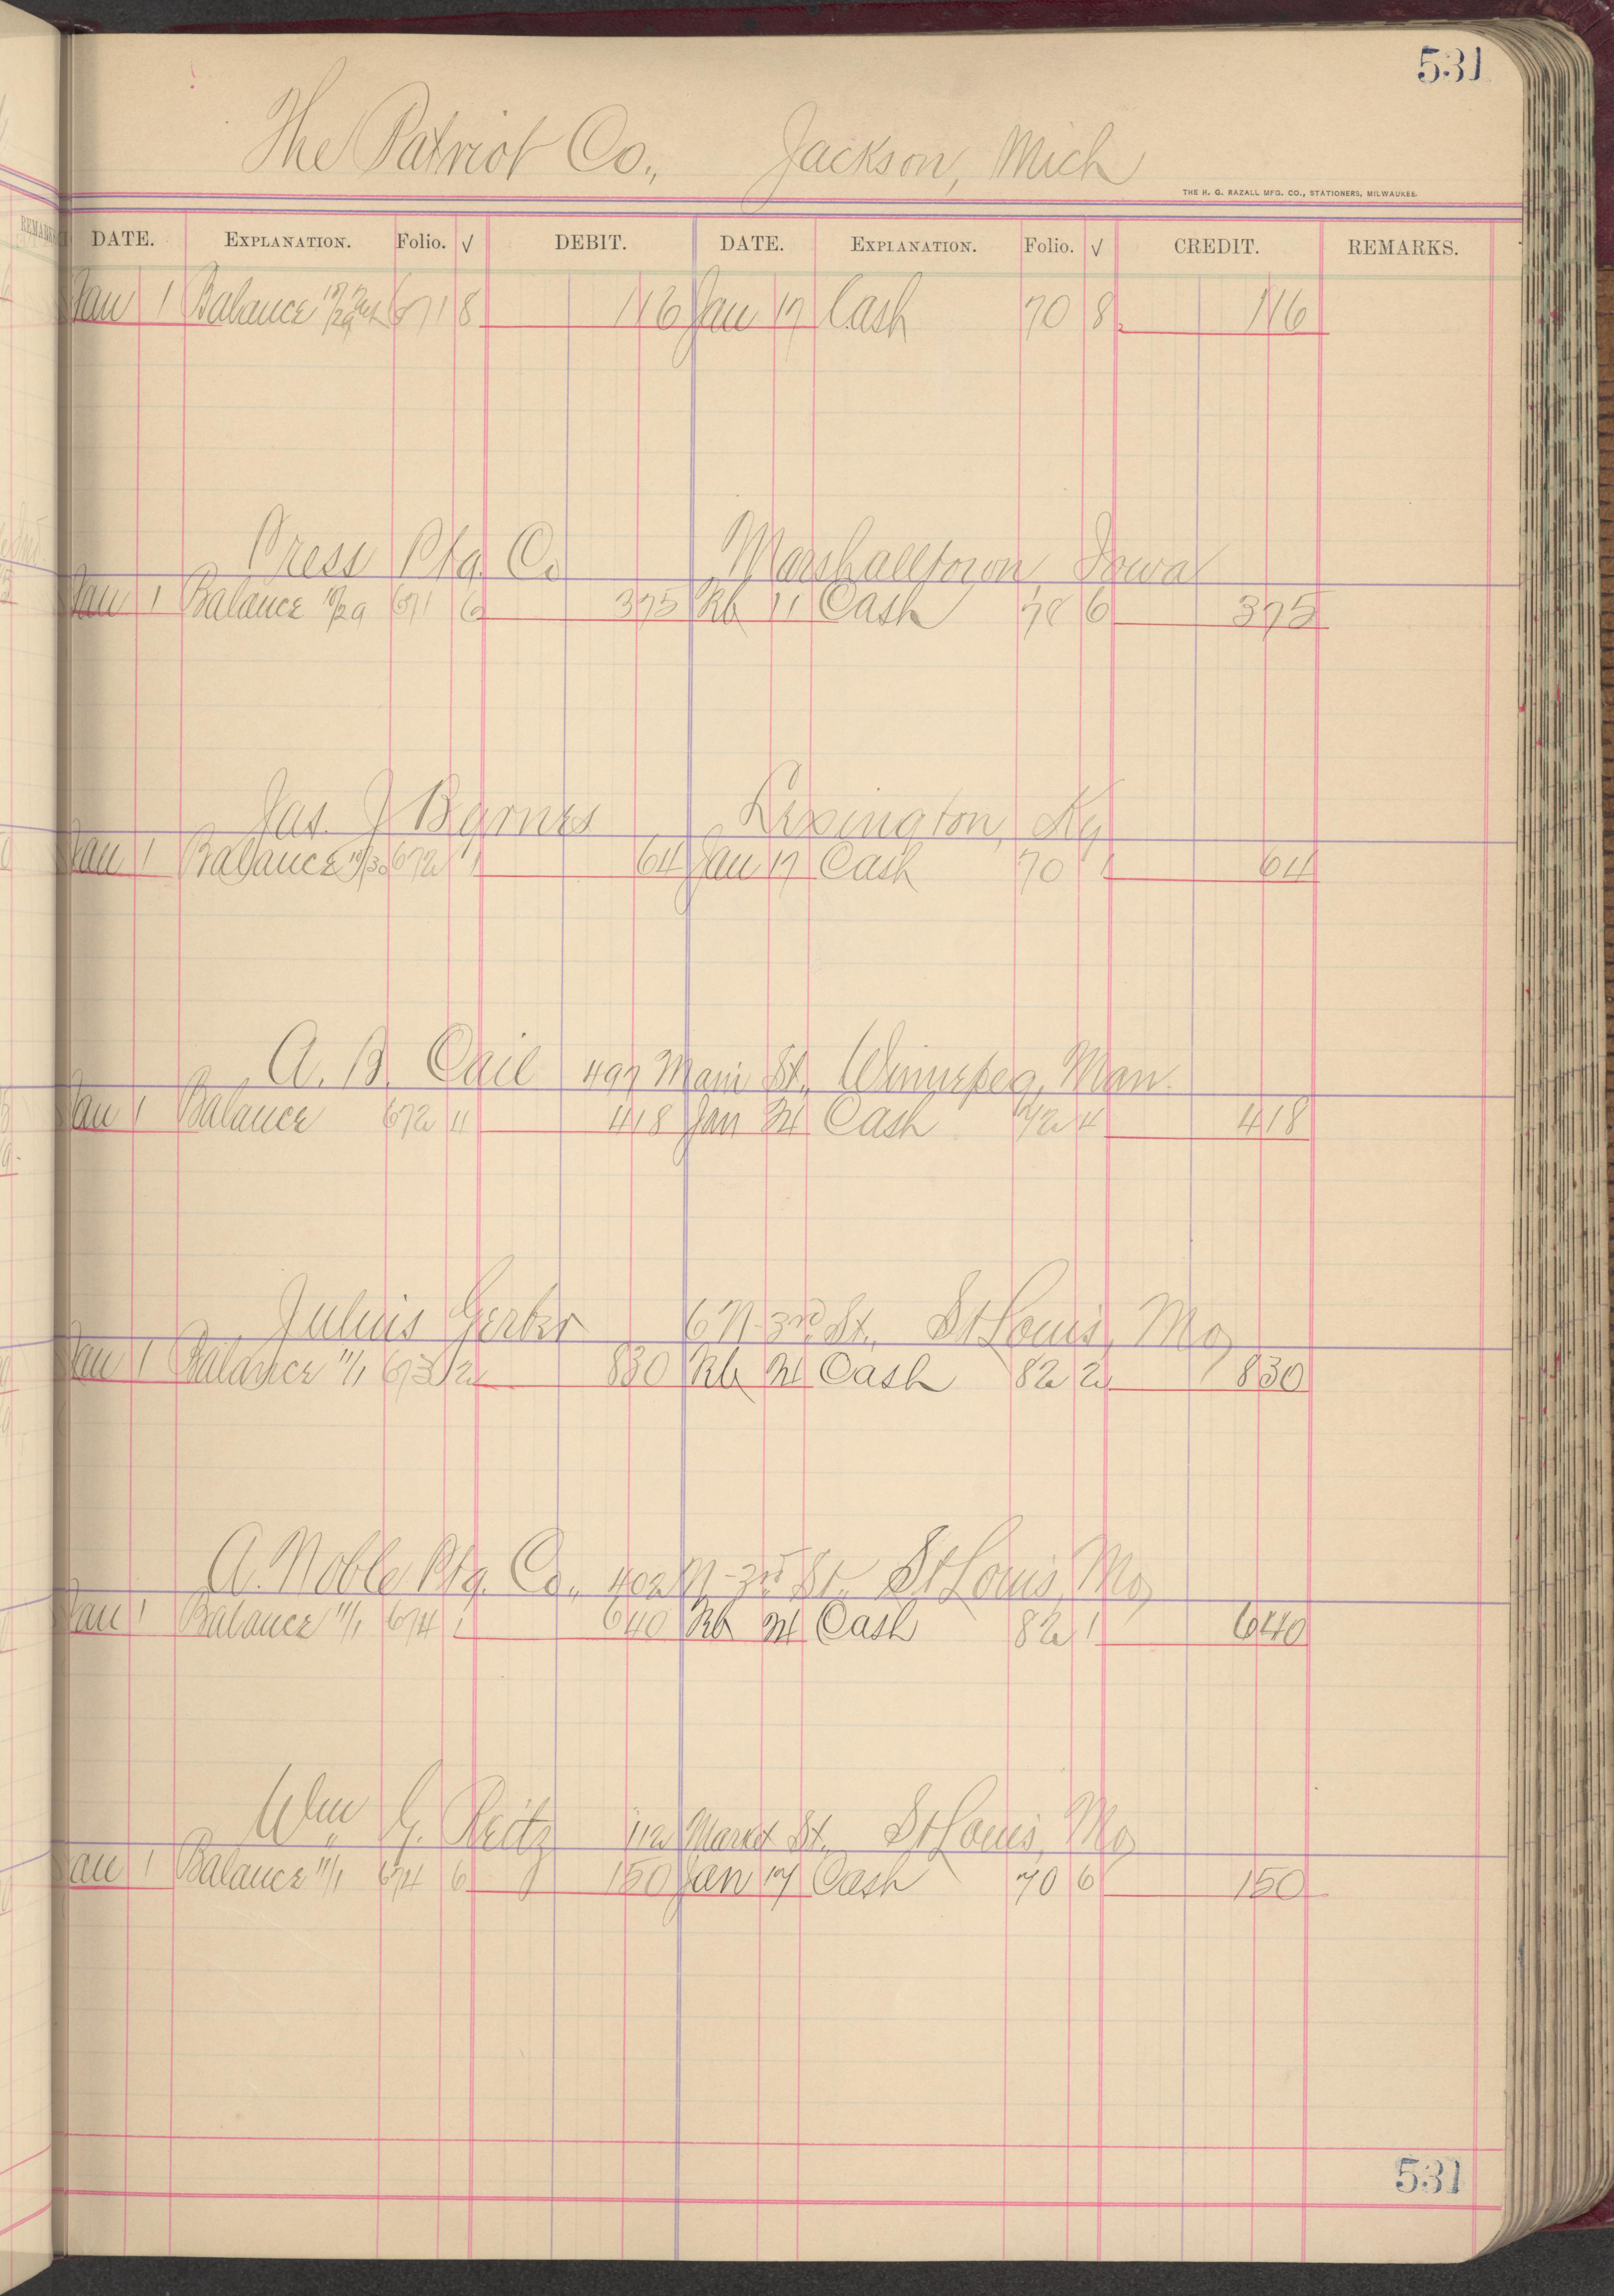 531
The Patriot Co., Jackson, Mich
THE H. G. RAZALL MFG. CO., STATIONERS, MILWAUKEE.
DATE. EXPLANATION. Folio. √ DEBIT. DATE. EXPLANATION. Folio. √ CREDIT. REMARKS.
Jan 1 Balance 671 8 1 16 Jan 17 Cash 70 8 1 16
Press Ptg. Co Marshalltown, Iowa
Jan 1 Balance 10/29 671 6 3 75 Feb 11 Cash 78 6 3 75
Jas. J Byrnes Lexington, Ky
Jan 1 Balance 10/30 672 1 64 Jan 17 Cash 70 1 64
A. B. Cail 497 Main St., Winnepeg, Man.
Jan 1 Balance 672 4 4 18 Jan 24 Cash 72 4 4 18
Julius Gerber 6 N. 3rd St., St Louis, Mo
Jan 1 Balance 11/1 673 2 8 30 Feb 24 Cash 82 2 8 30
A. Noble Ptg. Co., 402 N-3rd St., St Louis, Mo
Jan 1 Balance 11/1 674 1 6 40 Feb 24 Cash 82 1 6 40
Wm G. Reitz 112 Market St., St Louis, Mo
Jan 1 Balance 11/1 674 6 1 50 Jan 17 Cash 70 6 1 50
531